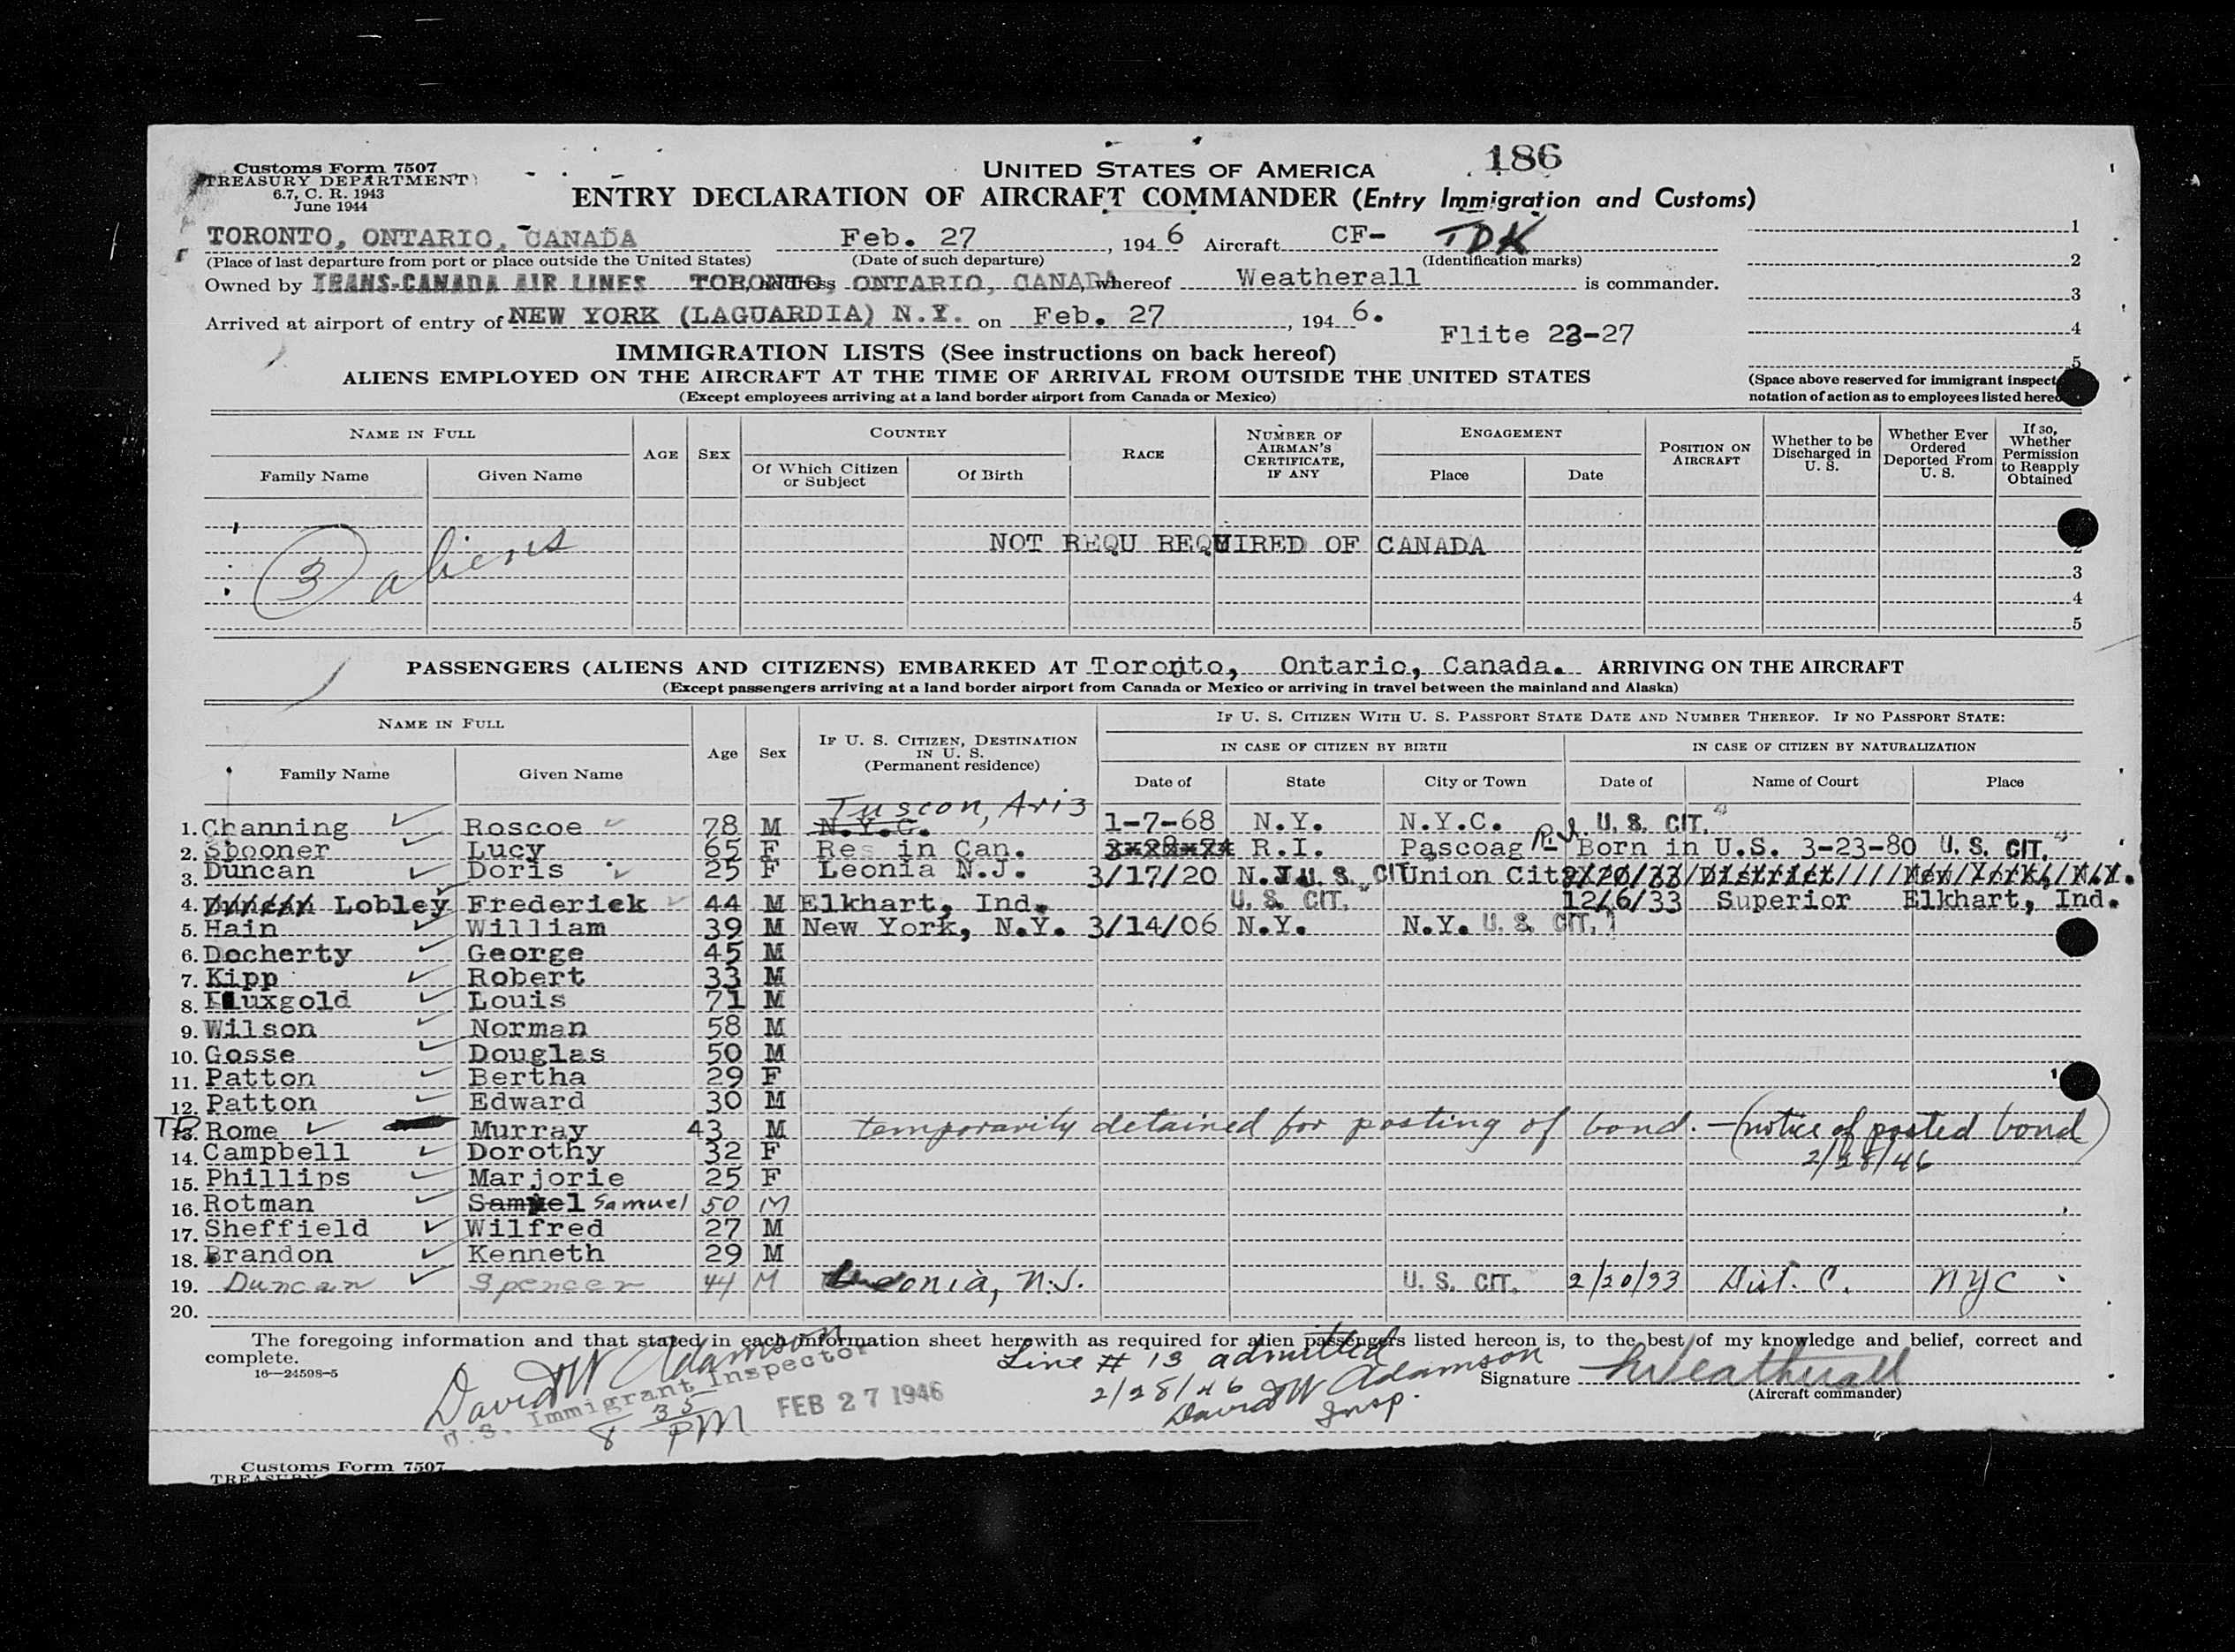 Customs Form 7507
TREASURY DEPARTMENT
6.7, C. R. 1943
June 1944
UNITED STATES OF AMERICA
186
ENTRY DECLARATION OF AIRCRAFT COMMANDER (Entry Immigration and Customs)
TORONTO, ONTARIO, CANADA Feb. 27, 1946 Aircraft CF- TDK
(Place of last departure from port or place outside the United States) (Date of such departure) (Identification marks)
Owned by TRANS-CANADA AIR LINES TORONTO, address ONTARIO, CANADA, whereof Weatherall is commander.
Arrived at airport of entry of NEW YORK (LAGUARDIA) N.Y. on Feb. 27, 1946.
Flite 23-27
1
2
3
4
5
(Space above reserved for immigrant inspect
notation of action as to employees listed hereo
IMMIGRATION LISTS (See instructions on back hereof)
ALIENS EMPLOYED ON THE AIRCRAFT AT THE TIME OF ARRIVAL FROM OUTSIDE THE UNITED STATES
(Except employees arriving at a land border airport from Canada or Mexico)
NAME IN FULL
Family Name Given Name
AGE SEX
COUNTRY
Of Which Citizen or Subject Of Birth
RACE
NUMBER OF AIRMAN'S CERTIFICATE, IF ANY
ENGAGEMENT
Place Date
POSITION ON AIRCRAFT
Whether to be Discharged in U. S.
Whether Ever Ordered Deported From U. S.
If so, Whether Permission to Reapply Obtained
3 aliens
NOT REQU REQUIRED OF CANADA
2
3
4
5
PASSENGERS (ALIENS AND CITIZENS) EMBARKED AT Toronto, Ontario, Canada. ARRIVING ON THE AIRCRAFT
(Except passengers arriving at a land border airport from Canada or Mexico or arriving in travel between the mainland and Alaska)
NAME IN FULL
Family Name Given Name
Age Sex
IF U. S. CITIZEN, DESTINATION IN U. S.
(Permanent residence)
IF U. S. CITIZEN WITH U. S. PASSPORT STATE DATE AND NUMBER THEREOF. IF NO PASSPORT STATE:
IN CASE OF CITIZEN BY BIRTH IN CASE OF CITIZEN BY NATURALIZATION
Date of State City or Town Date of Name of Court Place
Tuscon, Ariz
1. Channing Roscoe 78 M N.Y.C. 1-7-68 N.Y. N.Y.C. U. S. CIT.
2. Spooner Lucy 65 F Res in Can. R.I. Pascoag R.I. Born in U.S. 3-23-80 U. S. CIT.
3. Duncan Doris 25 F Leonia N.J. 3/17/20 N.J. U. S. CIT Union City 2/20/33 District New York, N.Y.
4. Duncan Lobley Frederick 44 M Elkhart, Ind. U. S. CIT. 12/6/33 Superior Elkhart, Ind.
5. Hain William 39 M New York, N.Y. 3/14/06 N.Y. N.Y. U. S. CIT.
6. Docherty George 45 M
7. Kipp Robert 33 M
8. Luxgold Louis 71 M
9. Wilson Norman 58 M
10. Gosse Douglas 50 M
11. Patton Bertha 29 F
12. Patton Edward 30 M
TD 13. Rome Murray 43 M temporarily detained for posting of bond. - (notice of posted bond)
2/28/46
14. Campbell Dorothy 32 F
15. Phillips Marjorie 25 F
16. Rotman Samuel Samuel 50 M
17. Sheffield Wilfred 27 M
18. Brandon Kenneth 29 M
19. Duncan Spencer 44 M Leonia, N.J. U. S. CIT. 2/20/33 Dist. C. NYC
20.
The foregoing information and that stated in each information sheet herewith as required for alien passengers listed hereon is, to the best of my knowledge and belief, correct and
complete.
16—24598-5
David W Adamson
U. S. Immigrant Inspector
8 35 PM
FEB 27 1946
Line # 13 admitted
2/28/46 David W Adamson
Insp.
Signature Weatherall
(Aircraft commander)
Customs Form 7507